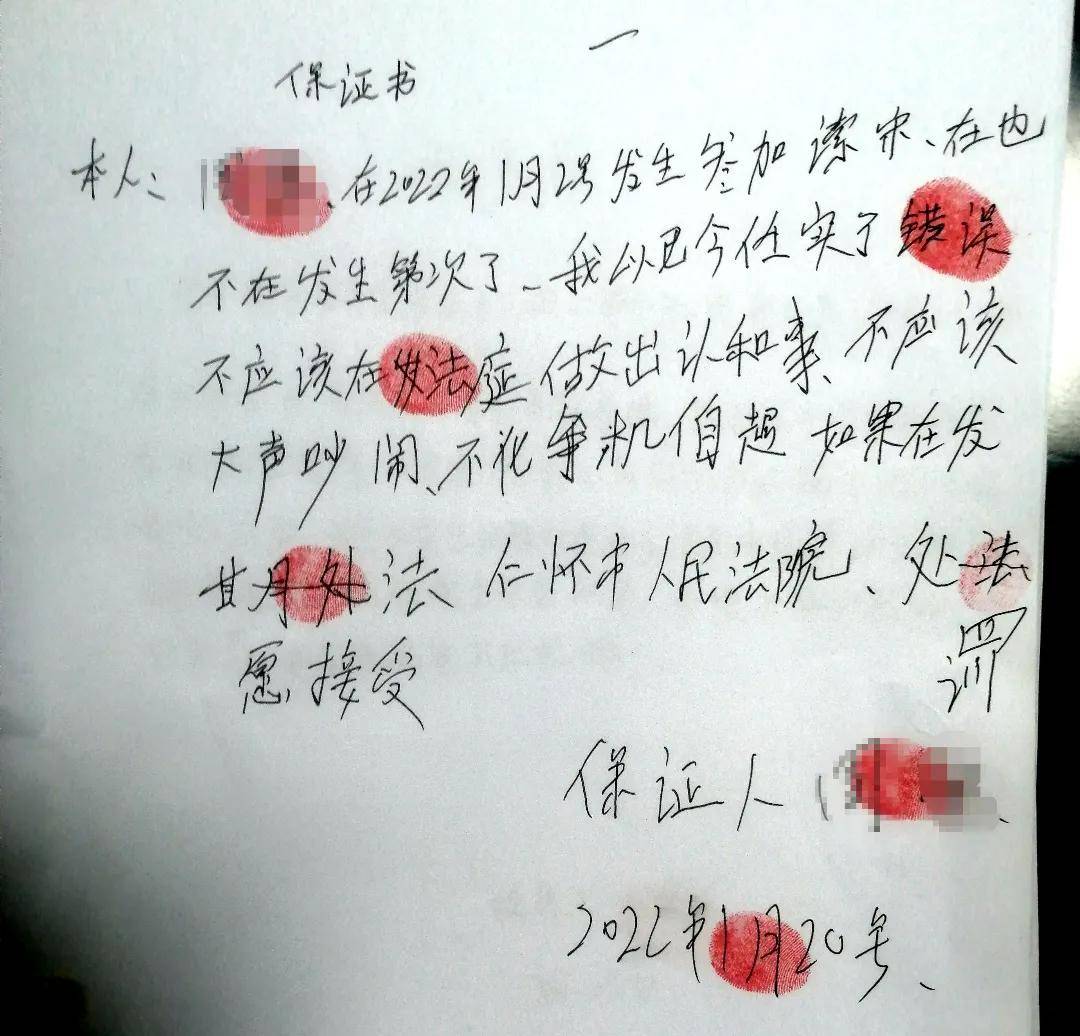 保证书
本人: 在2022年1月2号发生参加 、在也
不在发生第次了、我以已今任实了错误
不应该在发法庭做出认和事、不应该
大声吵闹、不 争 机值超 如果在发
甘 处法 仁怀市人民法院、处法
罚
愿接受
保证人
2022年1月20号、